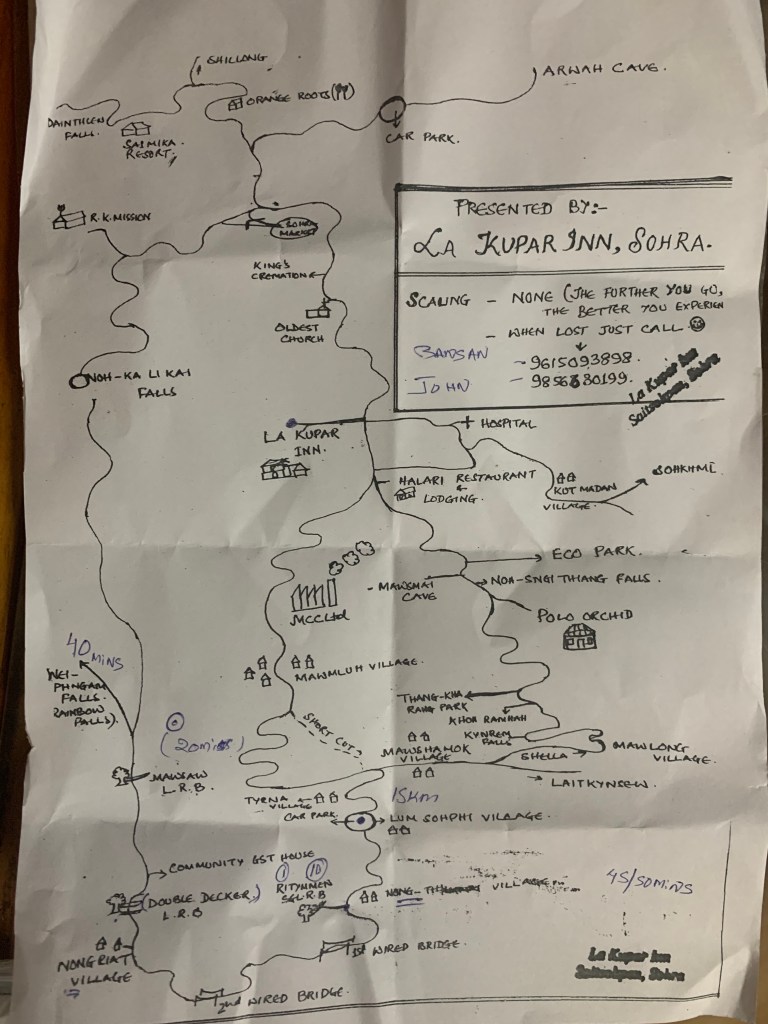 SHILLONG
ORANGE ROOTS
ARWAH CAVE.
DAINTHLEN
FALLS.
SAIMIKA
RESORT.
CAR PARK.
R.K. MISSION
SOHRA
MARKET
KING'S
CREMATION
OLDEST
CHURCH
PRESENTED BY:-
LA KUPAR INN, SOHRA.
SCALING - NONE (THE FURTHER YOU GO,
THE BETTER YOU EXPERIEN
- WHEN LOST JUST CALL
BANSAN - 9615093898.
JOHN -
La Kupar Inn
Saitsohpen, Sohra
NOH-KA LI KAI
FALLS
LA KUPAR
INN.
+ HOSPITAL
HALARI RESTAURANT
LODGING.
KUT MADAN
VILLAGE.
SOHKHMI
ECO PARK.
MAWSMAI
CAVE
NOH-SNGI THIANG FALLS.
MCCLtd
POLO ORCHID
40 MINS
WEI-
PHNGAM
FALLS.
RAINBOW
FALLS).
MAWMLUH VILLAGE.
THANG-KHA
RANG PARK
KHOH RAMHAH
KYNREM
FALLS
(20mins)
SHORT CUT?
MAWSHAMOK
VILLAGE
SHELLA
MAWLONG
VILLAGE.
MAWSAW
L.R.B.
LAITKYNSEW.
TYRNA
VILLAGE
15km
CAR PARK.
LUM SOHPHI VILLAGE.
COMMUNITY GST HOUSE
1 10
RITYMMEN
SGL.R.B
(DOUBLE DECKER)
L.R.B
VILLAGE
45/50MINS
NONGRIAT
VILLAGE
1st WIRED BRIDGE.
2nd WIRED BRIDGE.
La Kupar Inn
Saitsohpen, Sohra